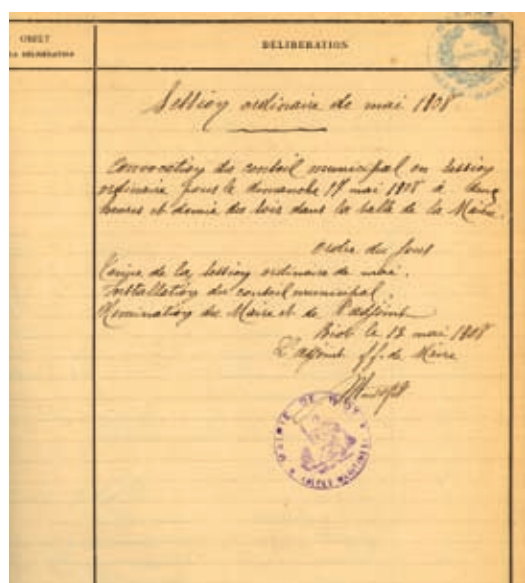 OBJET
DE LA DÉLIBÉRATION
DÉLIBÉRATION
Session ordinaire de mai 1908
Convocation du conseil municipal en session
ordinaire pour le dimanche 17 mai 1908 à deux
heures et demie du soir dans la salle de la Mairie.
Ordre du jour
de la session ordinaire de mai.
Installation du conseil municipal.
Nomination du Maire et de l'adjoint
Biot le 13 mai 1908
L'adjoint ff. de Maire
MAIRIE DE BIOT
ALPES MARITIMES